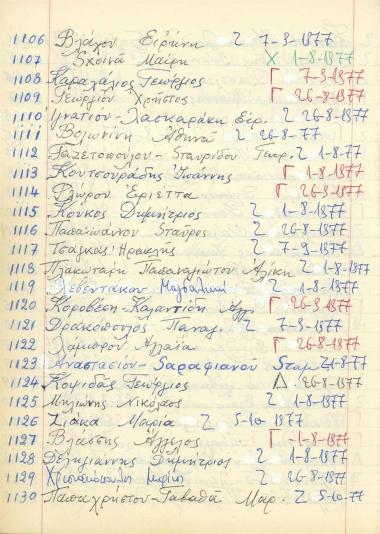 1106 Βλάχου Ειρήνη Ζ 7-9-1977
1107 Σχοινά Μαίρη Χ 1-8-1977
1108 Καραγάγιος Γεώργιος Γ 7-9-1977
1109 Γεωργίου Χρήστος Γ 26-8-1977
1110 Ιγνατίου-Λασκαράκη Ειρ. Ζ 26-8-1977
1111 Βολωνίνη Αθηνά Ζ 26-8-77
1112 Γαζετοπούλου-Σταυρίδου Γεωρ. Ζ 1-8-77
1113 Κουτσουράδης Ιωάννης Γ 1-8-1977
1114 Φλώρου Εριέττα Γ 26-9-1977
1115 Κούκος Δημήτριος Ζ 1-8-1977
1116 Παπαϊωάννου Σταύρος Ζ 26-8-1977
1117 Τσαγκας Ηρακλής Ζ 7-9-1977
1118 Πλακωταρη Παπαναγιώτου Αλίκη Ζ 1-8-1977
1119 Λεβεντάκου Μαγδαληνή Ζ 1-8-1977
1120 Κοροβέση-Καλαντίδη Αγγ. Γ 26-9-1977
1121 Δρακόπουλος Παναγ. Ζ 7-9-1977
1122 Λαμπρου Αγλαΐα Γ 26-8-1977
1123 Αναστασίου-Σαραφιανού Σταμ Ζ 1-8-77
1124 Κοψιδάς Γεώργιος Δ 26-8-1977
1125 Μηλιώνης Νικόλαος Ζ 1-8-1977
1126 Ζιάκα Μαρία Ζ 5-10-1977
1127 Βλάσσης Άγγελος Γ -1-8-1977
1128 Δεληγιάννης Δημήτριος Ζ 1-8-1977
1129 Ζ 26-8-1977
1130 Παπαχρήστου-Γαβαθά Μαρ. Ζ 5-10-77